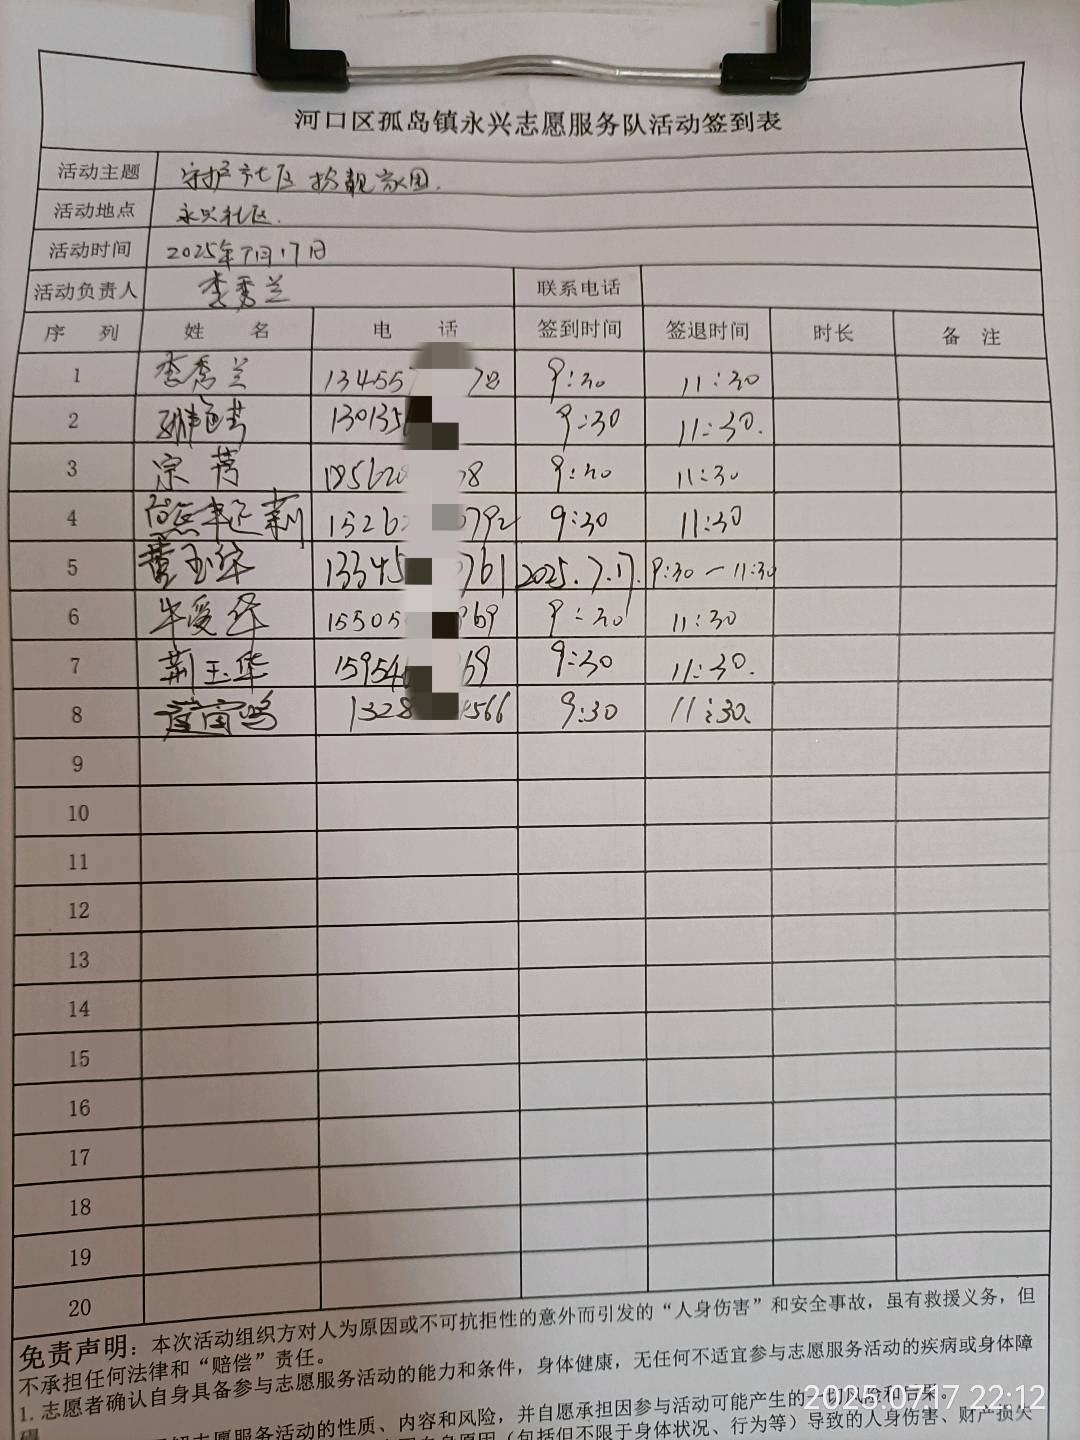 河口区孤岛镇永兴志愿服务队活动签到表
活动主题 守护社区 扮靓家园.
活动地点 永兴社区.
活动时间 2025年7月17日
活动负责人 李秀兰 联系电话
序 列 姓 名 电 话 签到时间 签退时间 时长 备 注
1 李秀兰 134557 78 9:30 11:30
2 130135 9:30 11:30.
3 宗芳 185620 8 9:30 11:30
4 1526 0792 9:30 11:30
5 黄玉华 13345 0761 2025.7.17. 9:30—11:30
6 牛爱华 15505 969 9:30 11:30
7 荆玉华 15954 69 9:30 11:30.
8 1328 4566 9:30 11:30.
9
10
11
12
13
14
15
16
17
18
19
20
免责声明：本次活动组织方对人为原因或不可抗拒性的意外而引发的“人身伤害”和安全事故，虽有救援义务，但
不承担任何法律和“赔偿”责任。
1. 志愿者确认自身具备参与志愿服务活动的能力和条件，身体健康，无任何不适宜参与志愿服务活动的疾病或身体障
志愿服务活动的性质、内容和风险，并自愿承担因参与活动可能产生的一切风险和后果。
自身原因（包括但不限于身体状况、行为等）导致的人身伤害、财产损失
2025.07.17 22:12